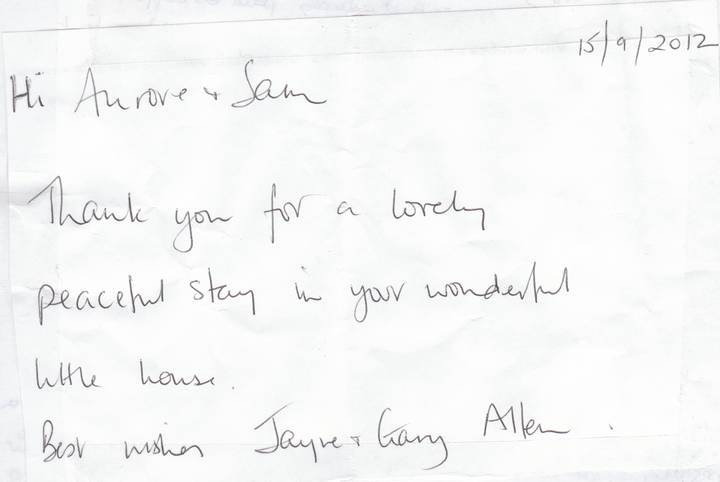 15/9/2012
Hi Aurore + Sam
Thank you for a lovely
peaceful stay in your wonderful
little house.
Best wishes Jayne + Gary Allen.